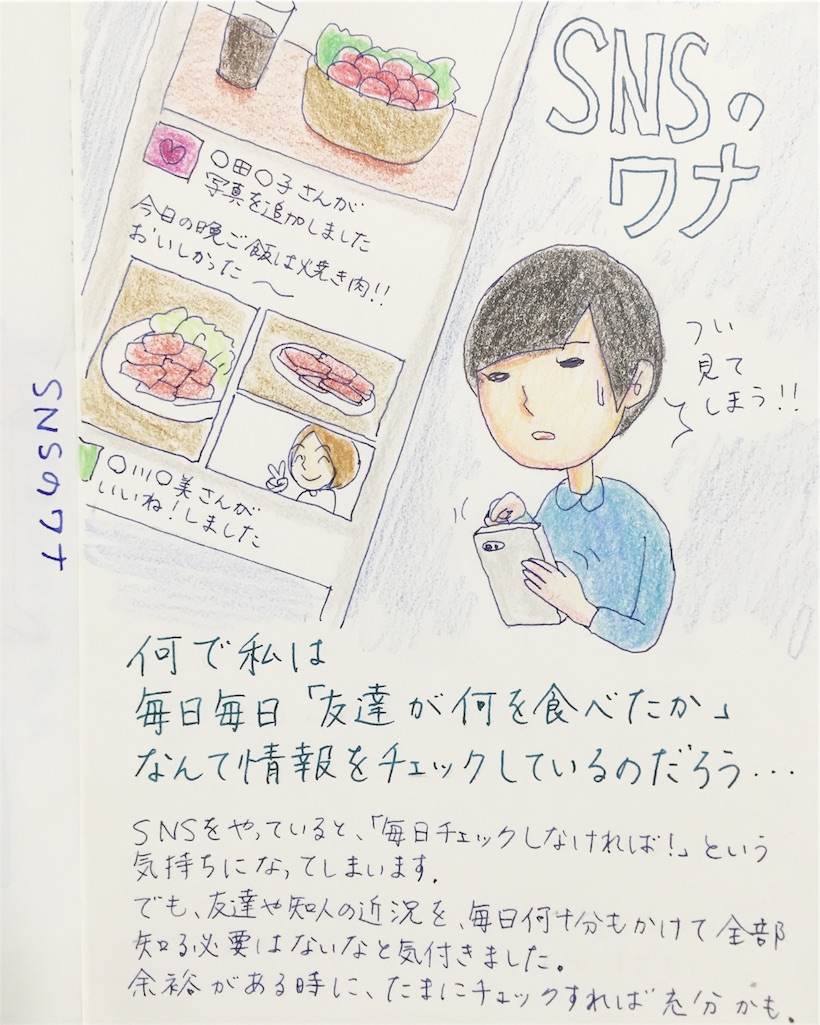 SNSの
ワナ
〇田〇子さんが
写真を追加しました
今日の晩ご飯は焼き肉!!
おいしかった〜
〇川〇美さんが
いいね!しました
つい
見て
しまう!!
SNSのワナ
何で私は
毎日毎日「友達が何を食べたか」
なんて情報をチェックしているのだろう…
SNSをやっていると、「毎日チェックしなければ!」という
気持ちになってしまいます。
でも、友達や知人の近況を、毎日何十分もかけて全部
知る必要はないなと気付きました。
余裕がある時に、たまにチェックすれば充分かも。